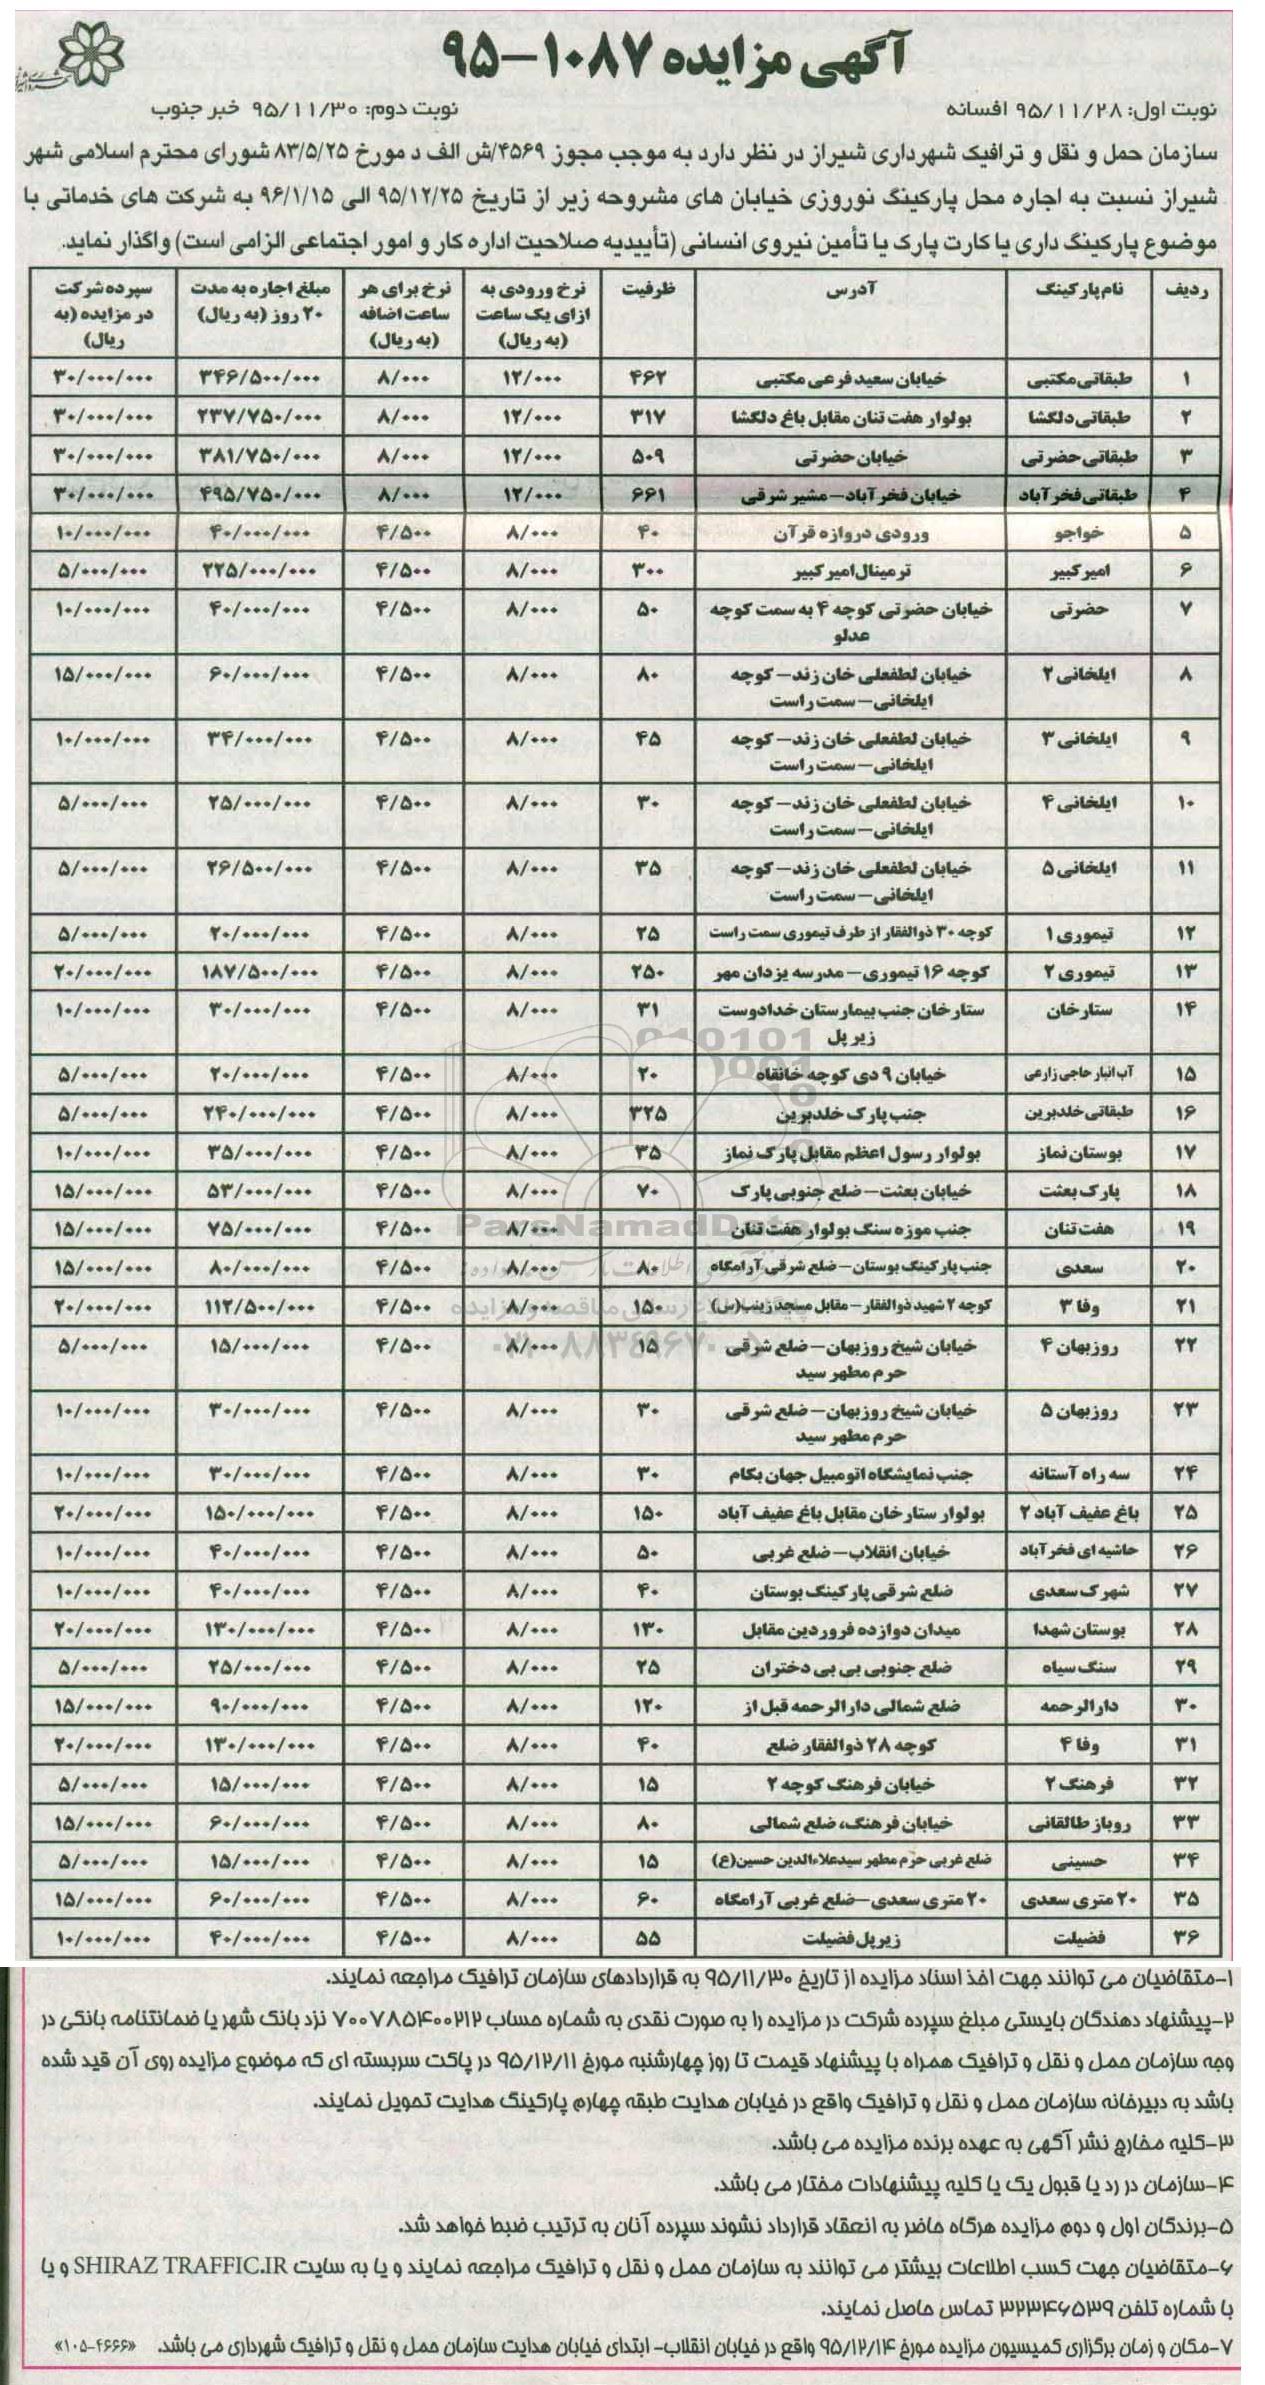 آگهی مزایده ۱۰۸۷-۹۵
نوبت اول: ۹۵/۱۱/۲۸ افسانه
نوبت دوم: ۹۵/۱۱/۳۰ خبر جنوب
سازمان حمل و نقل و ترافیک شهرداری شیراز در نظر دارد به موجب مجوز ۴۵۶۹/ش الف د مورخ ۸۳/۵/۲۵ شورای محترم اسلامی شهر
شیراز نسبت به اجاره محل پارکینگ نوروزی خیابان های مشروحه زیر از تاریخ ۹۵/۱۲/۲۵ الی ۹۶/۱/۱۵ به شرکت های خدماتی با
موضوع پارکینگ داری یا کارت پارک یا تأمین نیروی انسانی (تأییدیه صلاحیت اداره کار و امور اجتماعی الزامی است) واگذار نماید.
ردیف نام پارکینگ آدرس ظرفیت نرخ ورودی به ازای یک ساعت (به ریال) نرخ برای هر ساعت اضافه (به ریال) مبلغ اجاره به مدت ۲۰ روز (به ریال) سپرده شرکت در مزایده (به ریال)
۱ طبقاتی مکتبی خیابان سعید فرعی مکتبی ۴۶۲ ۱۲/۰۰۰ ۸/۰۰۰ ۳۴۶/۵۰۰/۰۰۰ ۳۰/۰۰۰/۰۰۰
۲ طبقاتی دلگشا بولوار هفت تنان مقابل باغ دلگشا ۳۱۷ ۱۲/۰۰۰ ۸/۰۰۰ ۲۳۷/۷۵۰/۰۰۰ ۳۰/۰۰۰/۰۰۰
۳ طبقاتی حضرتی خیابان حضرتی ۵۰۹ ۱۲/۰۰۰ ۸/۰۰۰ ۳۸۱/۷۵۰/۰۰۰ ۳۰/۰۰۰/۰۰۰
۴ طبقاتی فخرآباد خیابان فخرآباد-مشیر شرقی ۶۶۱ ۱۲/۰۰۰ ۸/۰۰۰ ۴۹۵/۷۵۰/۰۰۰ ۳۰/۰۰۰/۰۰۰
۵ خواجو ورودی دروازه قرآن ۴۰ ۸/۰۰۰ ۴/۵۰۰ ۴۰/۰۰۰/۰۰۰ ۱۰/۰۰۰/۰۰۰
۶ امیرکبیر ترمینال امیرکبیر ۳۰۰ ۸/۰۰۰ ۴/۵۰۰ ۲۲۵/۰۰۰/۰۰۰ ۵/۰۰۰/۰۰۰
۷ حضرتی خیابان حضرتی کوچه ۴ به سمت کوچه عدلو ۵۰ ۸/۰۰۰ ۴/۵۰۰ ۴۰/۰۰۰/۰۰۰ ۱۰/۰۰۰/۰۰۰
۸ ایلخانی ۲ خیابان لطفعلی خان زند-کوچه ایلخانی-سمت راست ۸۰ ۸/۰۰۰ ۴/۵۰۰ ۶۰/۰۰۰/۰۰۰ ۱۵/۰۰۰/۰۰۰
۹ ایلخانی ۳ خیابان لطفعلی خان زند-کوچه ایلخانی-سمت راست ۴۵ ۸/۰۰۰ ۴/۵۰۰ ۳۴/۰۰۰/۰۰۰ ۱۰/۰۰۰/۰۰۰
۱۰ ایلخانی ۴ خیابان لطفعلی خان زند-کوچه ایلخانی-سمت راست ۳۰ ۸/۰۰۰ ۴/۵۰۰ ۲۵/۰۰۰/۰۰۰ ۵/۰۰۰/۰۰۰
۱۱ ایلخانی ۵ خیابان لطفعلی خان زند-کوچه ایلخانی-سمت راست ۳۵ ۸/۰۰۰ ۴/۵۰۰ ۲۶/۵۰۰/۰۰۰ ۵/۰۰۰/۰۰۰
۱۲ تیموری ۱ کوچه ۳۰ ذوالفقار از طرف تیموری سمت راست ۲۵ ۸/۰۰۰ ۴/۵۰۰ ۲۰/۰۰۰/۰۰۰ ۵/۰۰۰/۰۰۰
۱۳ تیموری ۲ کوچه ۱۶ تیموری-مدرسه یزدان مهر ۲۵۰ ۸/۰۰۰ ۴/۵۰۰ ۱۸۷/۵۰۰/۰۰۰ ۲۰/۰۰۰/۰۰۰
۱۴ ستارخان ستارخان جنب بیمارستان خدادوست زیر پل ۳۱ ۸/۰۰۰ ۴/۵۰۰ ۳۰/۰۰۰/۰۰۰ ۱۰/۰۰۰/۰۰۰
۱۵ آب انبار حاجی زارعی خیابان ۹ دی کوچه خانقاه ۲۰ ۸/۰۰۰ ۴/۵۰۰ ۲۰/۰۰۰/۰۰۰ ۵/۰۰۰/۰۰۰
۱۶ طبقاتی خلدبرین جنب پارک خلدبرین ۳۲۵ ۸/۰۰۰ ۴/۵۰۰ ۲۴۰/۰۰۰/۰۰۰ ۵/۰۰۰/۰۰۰
۱۷ بوستان نماز بولوار رسول اعظم مقابل پارک نماز ۳۵ ۸/۰۰۰ ۴/۵۰۰ ۳۵/۰۰۰/۰۰۰ ۱۰/۰۰۰/۰۰۰
۱۸ پارک بعثت خیابان بعثت-ضلع جنوبی پارک ۷۰ ۸/۰۰۰ ۴/۵۰۰ ۵۳/۰۰۰/۰۰۰ ۱۵/۰۰۰/۰۰۰
۱۹ هفت تنان جنب موزه سنگ بولوار هفت تنان ۸/۰۰۰ ۴/۵۰۰ ۷۵/۰۰۰/۰۰۰ ۱۵/۰۰۰/۰۰۰
۲۰ سعدی جنب پارکینگ بوستان-ضلع شرقی آرامگاه ۸۰ ۸/۰۰۰ ۴/۵۰۰ ۸۰/۰۰۰/۰۰۰ ۱۵/۰۰۰/۰۰۰
۲۱ وفا ۳ کوچه ۲ شهید ذوالفقار-مقابل مسجد زینب(س) ۱۵۰ ۸/۰۰۰ ۴/۵۰۰ ۱۱۲/۵۰۰/۰۰۰ ۲۰/۰۰۰/۰۰۰
۲۲ روزبهان ۴ خیابان شیخ روزبهان-ضلع شرقی حرم مطهر سید ۱۵ ۸/۰۰۰ ۴/۵۰۰ ۱۵/۰۰۰/۰۰۰ ۵/۰۰۰/۰۰۰
۲۳ روزبهان ۵ خیابان شیخ روزبهان-ضلع شرقی حرم مطهر سید ۳۰ ۸/۰۰۰ ۴/۵۰۰ ۳۰/۰۰۰/۰۰۰ ۱۰/۰۰۰/۰۰۰
۲۴ سه راه آستانه جنب نمایشگاه اتومبیل جهان بکام ۳۰ ۸/۰۰۰ ۴/۵۰۰ ۳۰/۰۰۰/۰۰۰ ۱۰/۰۰۰/۰۰۰
۲۵ باغ عفیف آباد ۲ بولوار ستارخان مقابل باغ عفیف آباد ۱۵۰ ۸/۰۰۰ ۴/۵۰۰ ۱۵۰/۰۰۰/۰۰۰ ۲۰/۰۰۰/۰۰۰
۲۶ حاشیه ای فخرآباد خیابان انقلاب-ضلع غربی ۵۰ ۸/۰۰۰ ۴/۵۰۰ ۴۰/۰۰۰/۰۰۰ ۱۰/۰۰۰/۰۰۰
۲۷ شهرک سعدی ضلع شرقی پارکینگ بوستان ۴۰ ۸/۰۰۰ ۴/۵۰۰ ۴۰/۰۰۰/۰۰۰ ۱۰/۰۰۰/۰۰۰
۲۸ بوستان شهدا میدان دوازده فروردین مقابل ۱۳۰ ۸/۰۰۰ ۴/۵۰۰ ۱۳۰/۰۰۰/۰۰۰ ۲۰/۰۰۰/۰۰۰
۲۹ سنگ سیاه ضلع جنوبی بی بی دختران ۲۵ ۸/۰۰۰ ۴/۵۰۰ ۲۵/۰۰۰/۰۰۰ ۵/۰۰۰/۰۰۰
۳۰ دارالرحمه ضلع شمالی دارالرحمه قبل از ۱۲۰ ۸/۰۰۰ ۴/۵۰۰ ۹۰/۰۰۰/۰۰۰ ۱۵/۰۰۰/۰۰۰
۳۱ وفا ۴ کوچه ۲۸ ذوالفقار ضلع ۴۰ ۸/۰۰۰ ۴/۵۰۰ ۱۳۰/۰۰۰/۰۰۰ ۲۰/۰۰۰/۰۰۰
۳۲ فرهنگ ۲ خیابان فرهنگ کوچه ۲ ۱۵ ۸/۰۰۰ ۴/۵۰۰ ۱۵/۰۰۰/۰۰۰ ۵/۰۰۰/۰۰۰
۳۳ روباز طالقانی خیابان فرهنگ، ضلع شمالی ۸۰ ۸/۰۰۰ ۴/۵۰۰ ۶۰/۰۰۰/۰۰۰ ۱۵/۰۰۰/۰۰۰
۳۴ حسینی ضلع غربی حرم مطهر سید علاءالدین حسین(ع) ۱۵ ۸/۰۰۰ ۴/۵۰۰ ۱۵/۰۰۰/۰۰۰ ۵/۰۰۰/۰۰۰
۳۵ ۲۰ متری سعدی ۲۰ متری سعدی-ضلع غربی آرامگاه ۶۰ ۸/۰۰۰ ۴/۵۰۰ ۶۰/۰۰۰/۰۰۰ ۱۵/۰۰۰/۰۰۰
۳۶ فضیلت زیر پل فضیلت ۵۵ ۸/۰۰۰ ۴/۵۰۰ ۴۰/۰۰۰/۰۰۰ ۱۰/۰۰۰/۰۰۰
ParsNamadData
۱-متقاضیان می توانند جهت اخذ اسناد مزایده از تاریخ ۹۵/۱۱/۳۰ به قراردادهای سازمان ترافیک مراجعه نمایند.
۲-پیشنهاد دهندگان بایستی مبلغ سپرده شرکت در مزایده را به صورت نقدی به شماره حساب ۷۰۰۷۸۵۴۰۰۲۱۲ نزد بانک شهر یا ضمانتنامه بانکی در
وجه سازمان حمل و نقل و ترافیک همراه با پیشنهاد قیمت تا روز چهارشنبه مورخ ۹۵/۱۲/۱۱ در پاکت سربسته ای که موضوع مزایده روی آن قید شده
باشد به دبیرخانه سازمان حمل و نقل و ترافیک واقع در خیابان هدایت طبقه چهارم پارکینگ هدایت تحویل نمایند.
۳-کلیه مخارج نشر آگهی به عهده برنده مزایده می باشد.
۴-سازمان در رد یا قبول یک یا کلیه پیشنهادات مختار می باشد.
۵-برندگان اول و دوم مزایده هرگاه حاضر به انعقاد قرارداد نشوند سپرده آنان به ترتیب ضبط خواهد شد.
۶-متقاضیان جهت کسب اطلاعات بیشتر می توانند به سازمان حمل و نقل و ترافیک مراجعه نمایند و یا به سایت SHIRAZ TRAFFIC.IR و یا
با شماره تلفن ۳۲۳۴۶۵۳۹ تماس حاصل نمایند.
۷-مکان و زمان برگزاری کمیسیون مزایده مورخ ۹۵/۱۲/۱۴ واقع در خیابان انقلاب- ابتدای خیابان هدایت سازمان حمل و نقل و ترافیک شهرداری می باشد. «۱۰۵-۴۶۶۶»